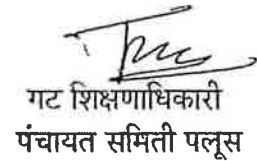 गट शिक्षणाधिकारी
पंचायत समिती पलूस